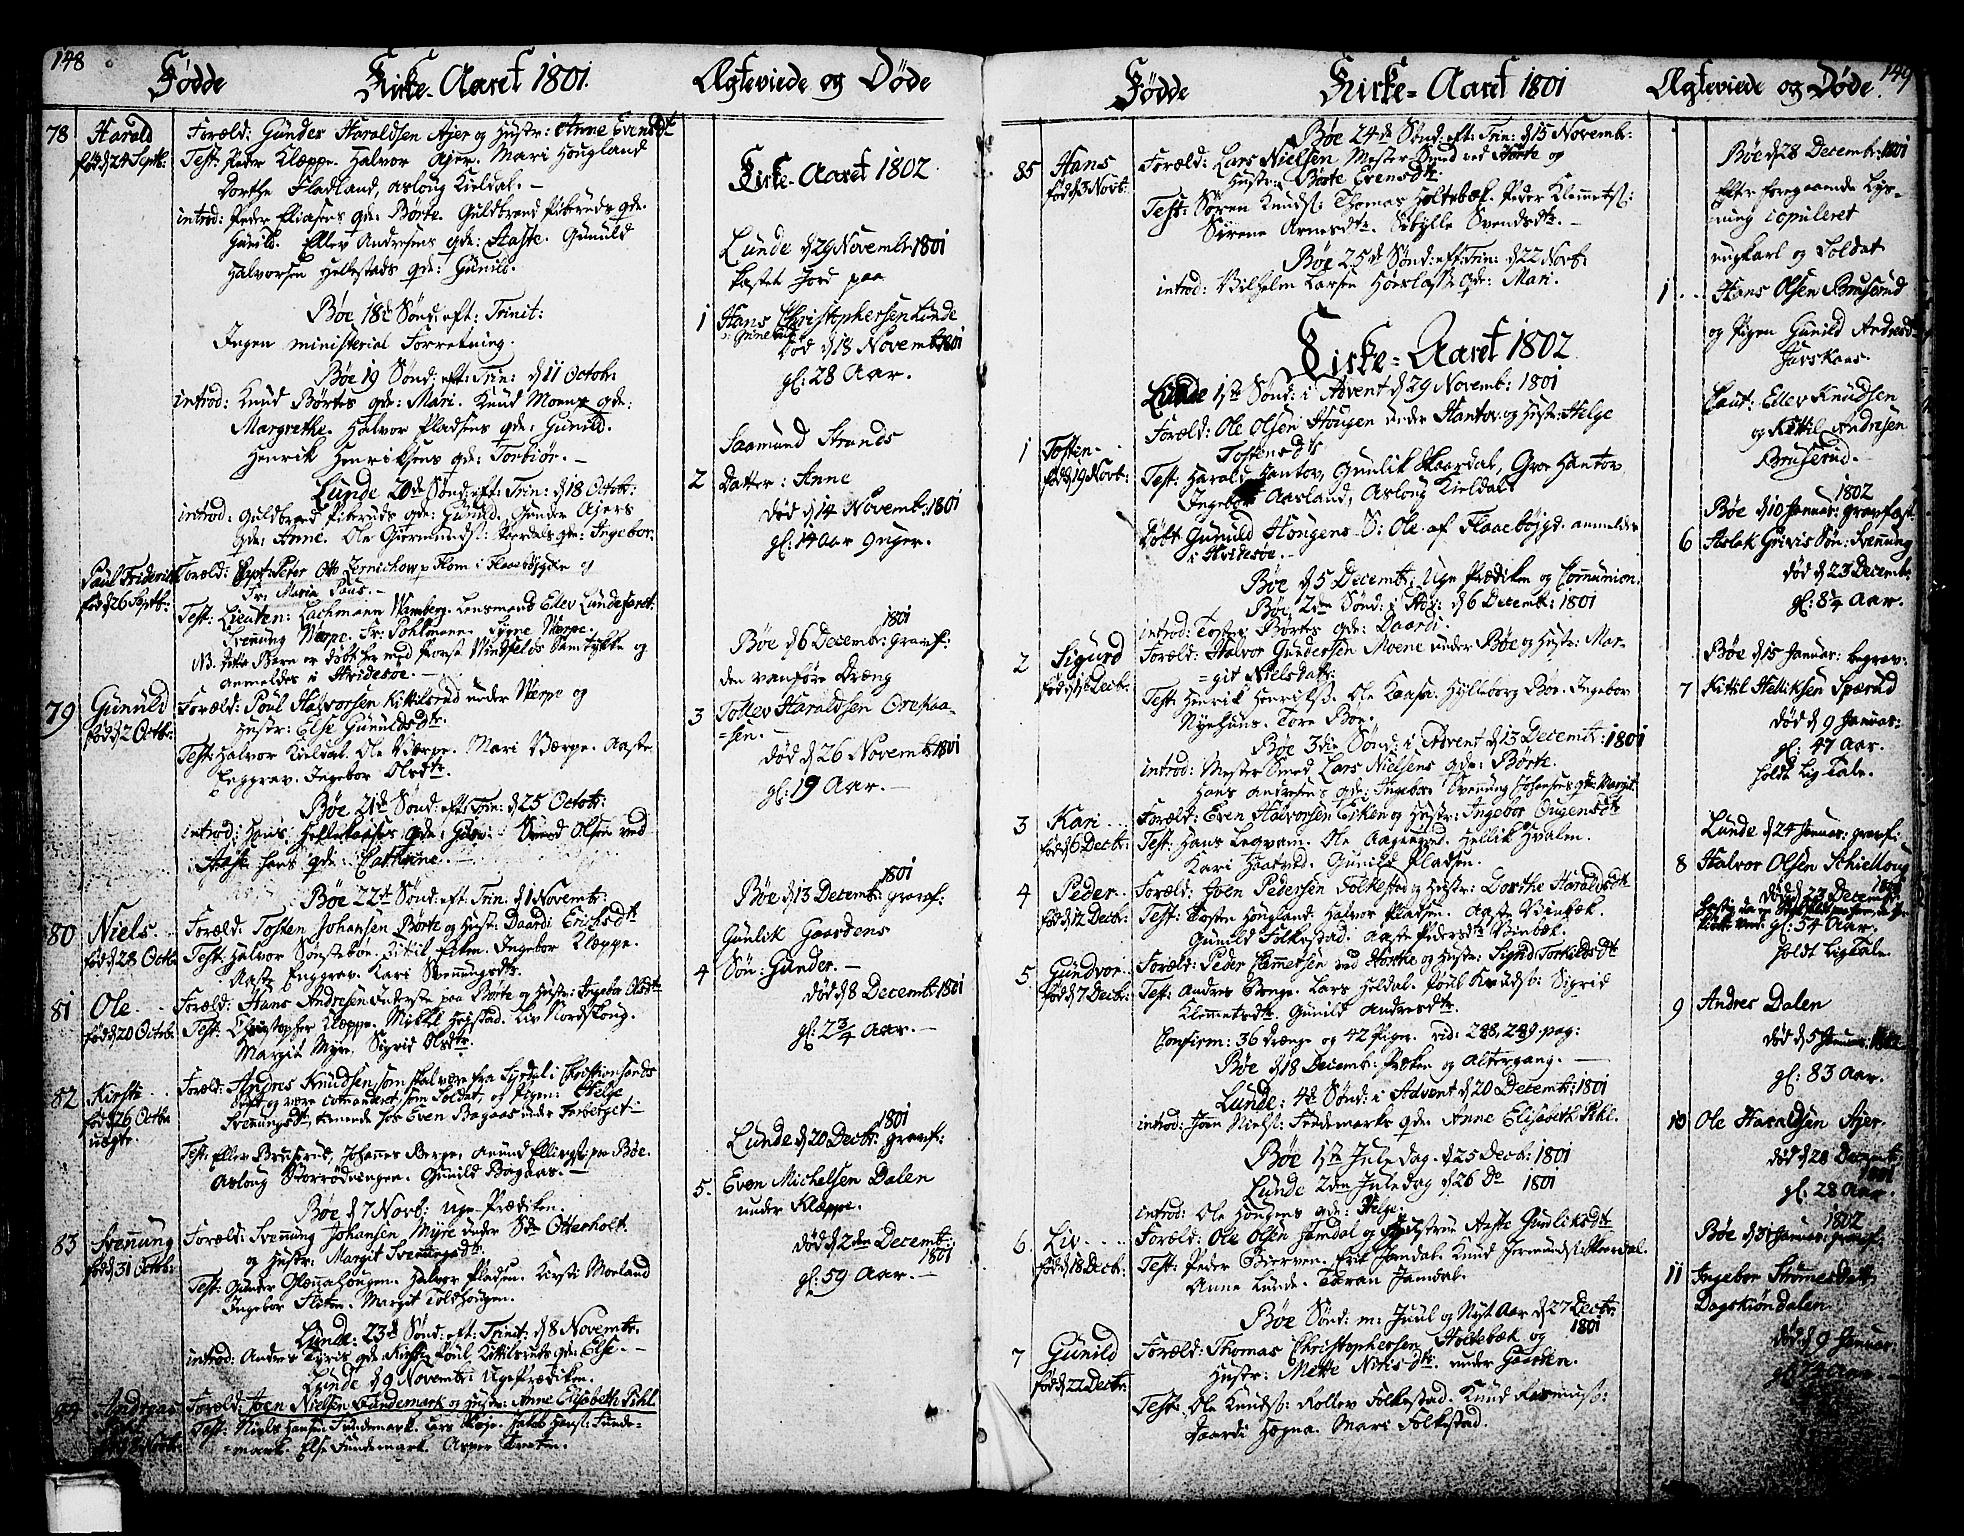 148
Fødde
Kirke-Aaret 1801.
Ægteviede og Døde
78 Harald
fød d 24 Septb:
Foræld: Gunder Haraldsen Ajer og Hustr: Anne Evensdtr
Test: Peder Klæppe. Halvor Ajer. Mari Hougland
Dorthe Fladland, Aslong Kieldal.
introd: Peder Eliasens qde: Børte. Guldbrand Piberuds qde:
Gunild. Ellev Andresens qde: Aaste. Gunuld
Halvorsen Hellestads qde: Gunild.
Bøe 18de Sønd: eft: Trinit:
Ingen ministerial Forretning.
Bøe 19 Sønd: eft: Trin: d 11 Octob:
introd: Knud Børtes qde: Mari. Knud Moens qde:
Margrethe. Halvor Pladsens qde: Gunild.
Henrik Henriksens qde: Torbiør.
Lunde 20de Sønd: eft: Trin: d 18 Octob:
introd: Guldbrand Piberuds qde: Gunild. Gunder Ajers
qde: Anne. Ole Giermunds: qde: Ingebor.
Paul Friderik
fød d 26 Septb:
Foræld: Capt: Peter Otto Flom i Flaabygden og
Fr: Maria Paus.
Test: Lieuten: Lachmann Lensmand Ellev Lundefaret.
Svennung Værpe. Fr: Pohlmann. Værpe.
NB. dette Barn er døbt her med Samtykke og
anmeldes i Hvidesøe.
79 Gunuld
fød d 2 Octb:
Foræld: Poul Halvorsen Kittilsrud under Værpe og
Hustr: Else Gunuldsdtr.
Test: Halvor Kieldal. Ole Værpe. Mari Værpe. Aaste
Enggrav. Ingebor Olsdtr.
Bøe 21de Sønd: eft: Trin: d 25 Octob:
introd: Hans qde: Svend Olsen ved
hans qde: Cathrine.
Bøe 22de Sønd: eft: Trin: d 1 Novemb:
80 Niels
fød d 28 Octb:
Foræld: Tosten Johansen Børte og Hustr: Daardi Erichsdtr
Test: Halvor Sønstebøe. Kittil Eiken. Ingebor Klæppe.
Aaste Enggrav. Kari Svennungsdtr.
81 Ole
fød d 20 Octb:
Foræld: Hans Andresen Inderste paa Børte og Hustr: Ingebor Olsdtr
Test: Christopher Klæppe. Mikkel Høystad. Liv Nordskoug.
Margit Myre. Sigrid Olsdtr.
82 Kirsti
fød d 26 Octb:
uægte.
Foræld: Andres Knudsen, som skal være fra i Christiansands
Stift og være som Soldat, og Pigen: Helge
Svennungsdtr, tienende hos Even Bagaas under Forberget
Test: Ellev Bruserud, Johannes Berge, Amund Ellingst: paa Bøe.
Aslong Storrødningen. Gunild Bagaas.
Bøe d 7 Novb: Uge Prædiken.
83 Svennung
fød d 31 Octb:
Foræld: Svennung Johansen Myre under Sdr Otterholt.
og Hustr: Margit Svennungsdtr.
Test: Gunder Glænnahougen. Halvor Pladsen. Kirsti Moeland
Ingebor Fliten. Margit Toldhougen.
Lunde: 23de Sønd: eft: Trinit: d 8 Novemb:
introd: Andres qde: Kirsti. Poul Kittilsruds qde: Else.
Lunde d 9 Novemb: Uge Prædiken.
Andreas
Foræld: Joen Nielsen Fundemark og Hustr: Anne Elisabeth Pihl.
Test: Niels Hansen Fundemark. Lars Jakob Hans: Funde-
mark. Else Fundemark. Asper
Kirke-Aaret 1802
Lunde d 29 Novemb: 1801
kastet Jord paa
1 Hans Christophersen Lunde
død d 18 Novemb: 1801
gl: 28 Aar.
Saamund Strands
2 Datter: Anne
død d 14 Novemb: 1801
gl: 14 Aar 9 uger.
1801
Bøe d 6 Decemb: gravf:
den vanføre Dræng
3 Tollev Haraldsen Orekaa-
=sen.
død d 26 Novemb: 1801
gl: 19 Aar.
1801
Bøe d 13 Decemb: gravf:
Gunlik Gaardens
4 Søn: Gunder.
død d 8 Decemb: 1801
gl: 2 3/4 Aar.
1801
Lunde d 20 Decb: gravf:
5. Even Michelsen Dalen
under Klæppe.
død d 2den Decemb:
1801
gl: 59 Aar.
149
Fødde
Kirke-Aaret 1801
Ægteviede og Døde
Bøe 24de Sønd: eft: Trin: d 15 Novemb:
85 Hans
fød d 3 Novb:
Foræld: Lars Nielsen Mester Smed ved og
Hustr: Børte Evensdtr:
Test: Søren Knuds: Thomas Holtebæk. Peder Klemmets:
Sirene Arnesdtr. Sibylle Svendsdtr.
Bøe 25de Sønd: eft: Trin: d 22 Novb:
introd: Vilhelm Larsen qde: Mari.
Kirke-Aaret 1802
Lunde 1ste Sønd: i Advent d 29 Novemb: 1801
1 Tosten
fød d 19 Novb:
Foræld: Ole Olsen Hougen under Hantov og Hustr: Helge
Tostensdtr
Test: Harald Hantov, Gunlik Skaardal, Groe Hantov,
Ingebor Aasland, Aslong Kieldal.
Døbt Gunuld Hougens S: Ole af Flaabøygd. anmeldes
i Hvidesøe.
Bøe d 5 Decemb: Uge Prædiken og Communion.
Bøe 2den Sønd: i Adv: d 6 Decemb: 1801
introd: Tosten Børtes qde: Daardi.
2 Sigurd
fød d 1ste Decb:
Foræld: Halvor Gundersen Moene under Bøe og Hustr: Mar-
=git Nielsdatr:
Test: Henrik Henriks: Ole Kaasa. Hylleborg Bøe. Ingebor
Nyehuus. Tore Bøe.
Bøe 3die Sønd: i Advent d 13 Decemb: 1801
introd: Mester Smed Lars Nielsens qde: Børte.
Hans Andresens qde: Ingebor. Svennung Johansens qde: Margit.
3 Kari
fød d 6 Decb:
Foræld: Even Halvorsen Eiken og Hustr: Ingebor Ougensdtr
Test: Hans Legvam. Ole Hellik Hvalen.
Kari Haatved. Gunild Pladsen.
4 Peder
fød d 12 Decb:
Foræld: Joen Pedersen Folkestad og Hustr: Dorthe Haraldsdtr
Test: Tosten Hougland. Halvor Pladsen. Aaste Vinbæk.
Gunild Folkestad. Aaste Pedersdtr Vinbæk.
5. Gundvor
fød d 7 Decb:
Foræld: Peder Clemmetsen ved og Hustr: Signe Torkildsdtr
Test: Andres Lars Heldal. Poul Knuds: Sigrid
Klemmetsdtr. Gunild Andresdtr.
Confirm: 36 drænge og 42 Piger. vid: 288, 289 pag:
Bøe d 18 Decemb: Præken og Altergang.
Lunde: 4de Sønd: i Advent d 20 Decemb: 1801
introd: Joen Niels: Fundemarks qde: Anne Elisabeth Pihl.
Bøe 1ste Juledag. d 25 Decb: 1801
Lunde 2den Juledag d 26 Do 1801
introd: Ole Hougens qde: Helge.
6 Liv
fød d 18 Decb:
Foræld: Ole Olsen Jamdal og Hustrue Aaste Gunliksdtr
Test: Peder Bierven. Erik Jamdal. Knud Germunds: Skordal.
Anne Lunde. Taran Jamdal.
Bøe Sønd: m: Juul og Nyt Aar d 27 Decb:
1801
7 Gunild
fød d 22 Decb:
Foræld: Thomas Christophersen Holtebæk og
Hustr: Mette Nirisdtr. under Gaarden.
Test: Ole Knuds: Rollev Folkestad. Knud Rasmus:
Daardi Hogna. Mari Folkestad.
Bøe d 28 Decemb: 1801
efter foregaaende Lys-
ning copuleret
ungkarl og Soldat
1 Hans Olsen Bruserud
og Pigen Gunild Andresd
Jurskaas.
Caut: Ellev Knudsen
og Kittil Andresen
Bruserud.
1802
Bøe d 10 Januar: gravfæst
6 Aslak Grivis Søn: Svennung
død d 23 Decemb:
gl: 8 1/4 Aar.
Bøe d 15 Januar: begrav:
7 Kittil Helliksen Sperud
død d 9 Januar:
gl: 47 Aar.
holdt Lig Tale.
Lunde d 24 Januar: gravf:
8 Halvor Olsen Schielloug
død d 22 Decemb: 1801
gl: 54 Aar.
holdt Lig Tale.
9 Andres Dalen
død d 5 Januar: 1802
gl: 83 Aar.
10 Ole Haraldsen Ajer
død d 28 Decemb:
1801
gl: 28 Aar.
1802
Bøe d 31 Januar: gravf:
11 Ingebor
Dagskiøndalen
død d 9 Januar: